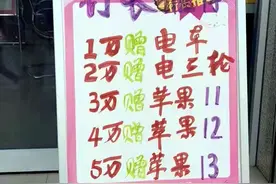 1万赠电车
2万赠电三轮
3万赠苹果11
4万赠苹果12
5万赠苹果13